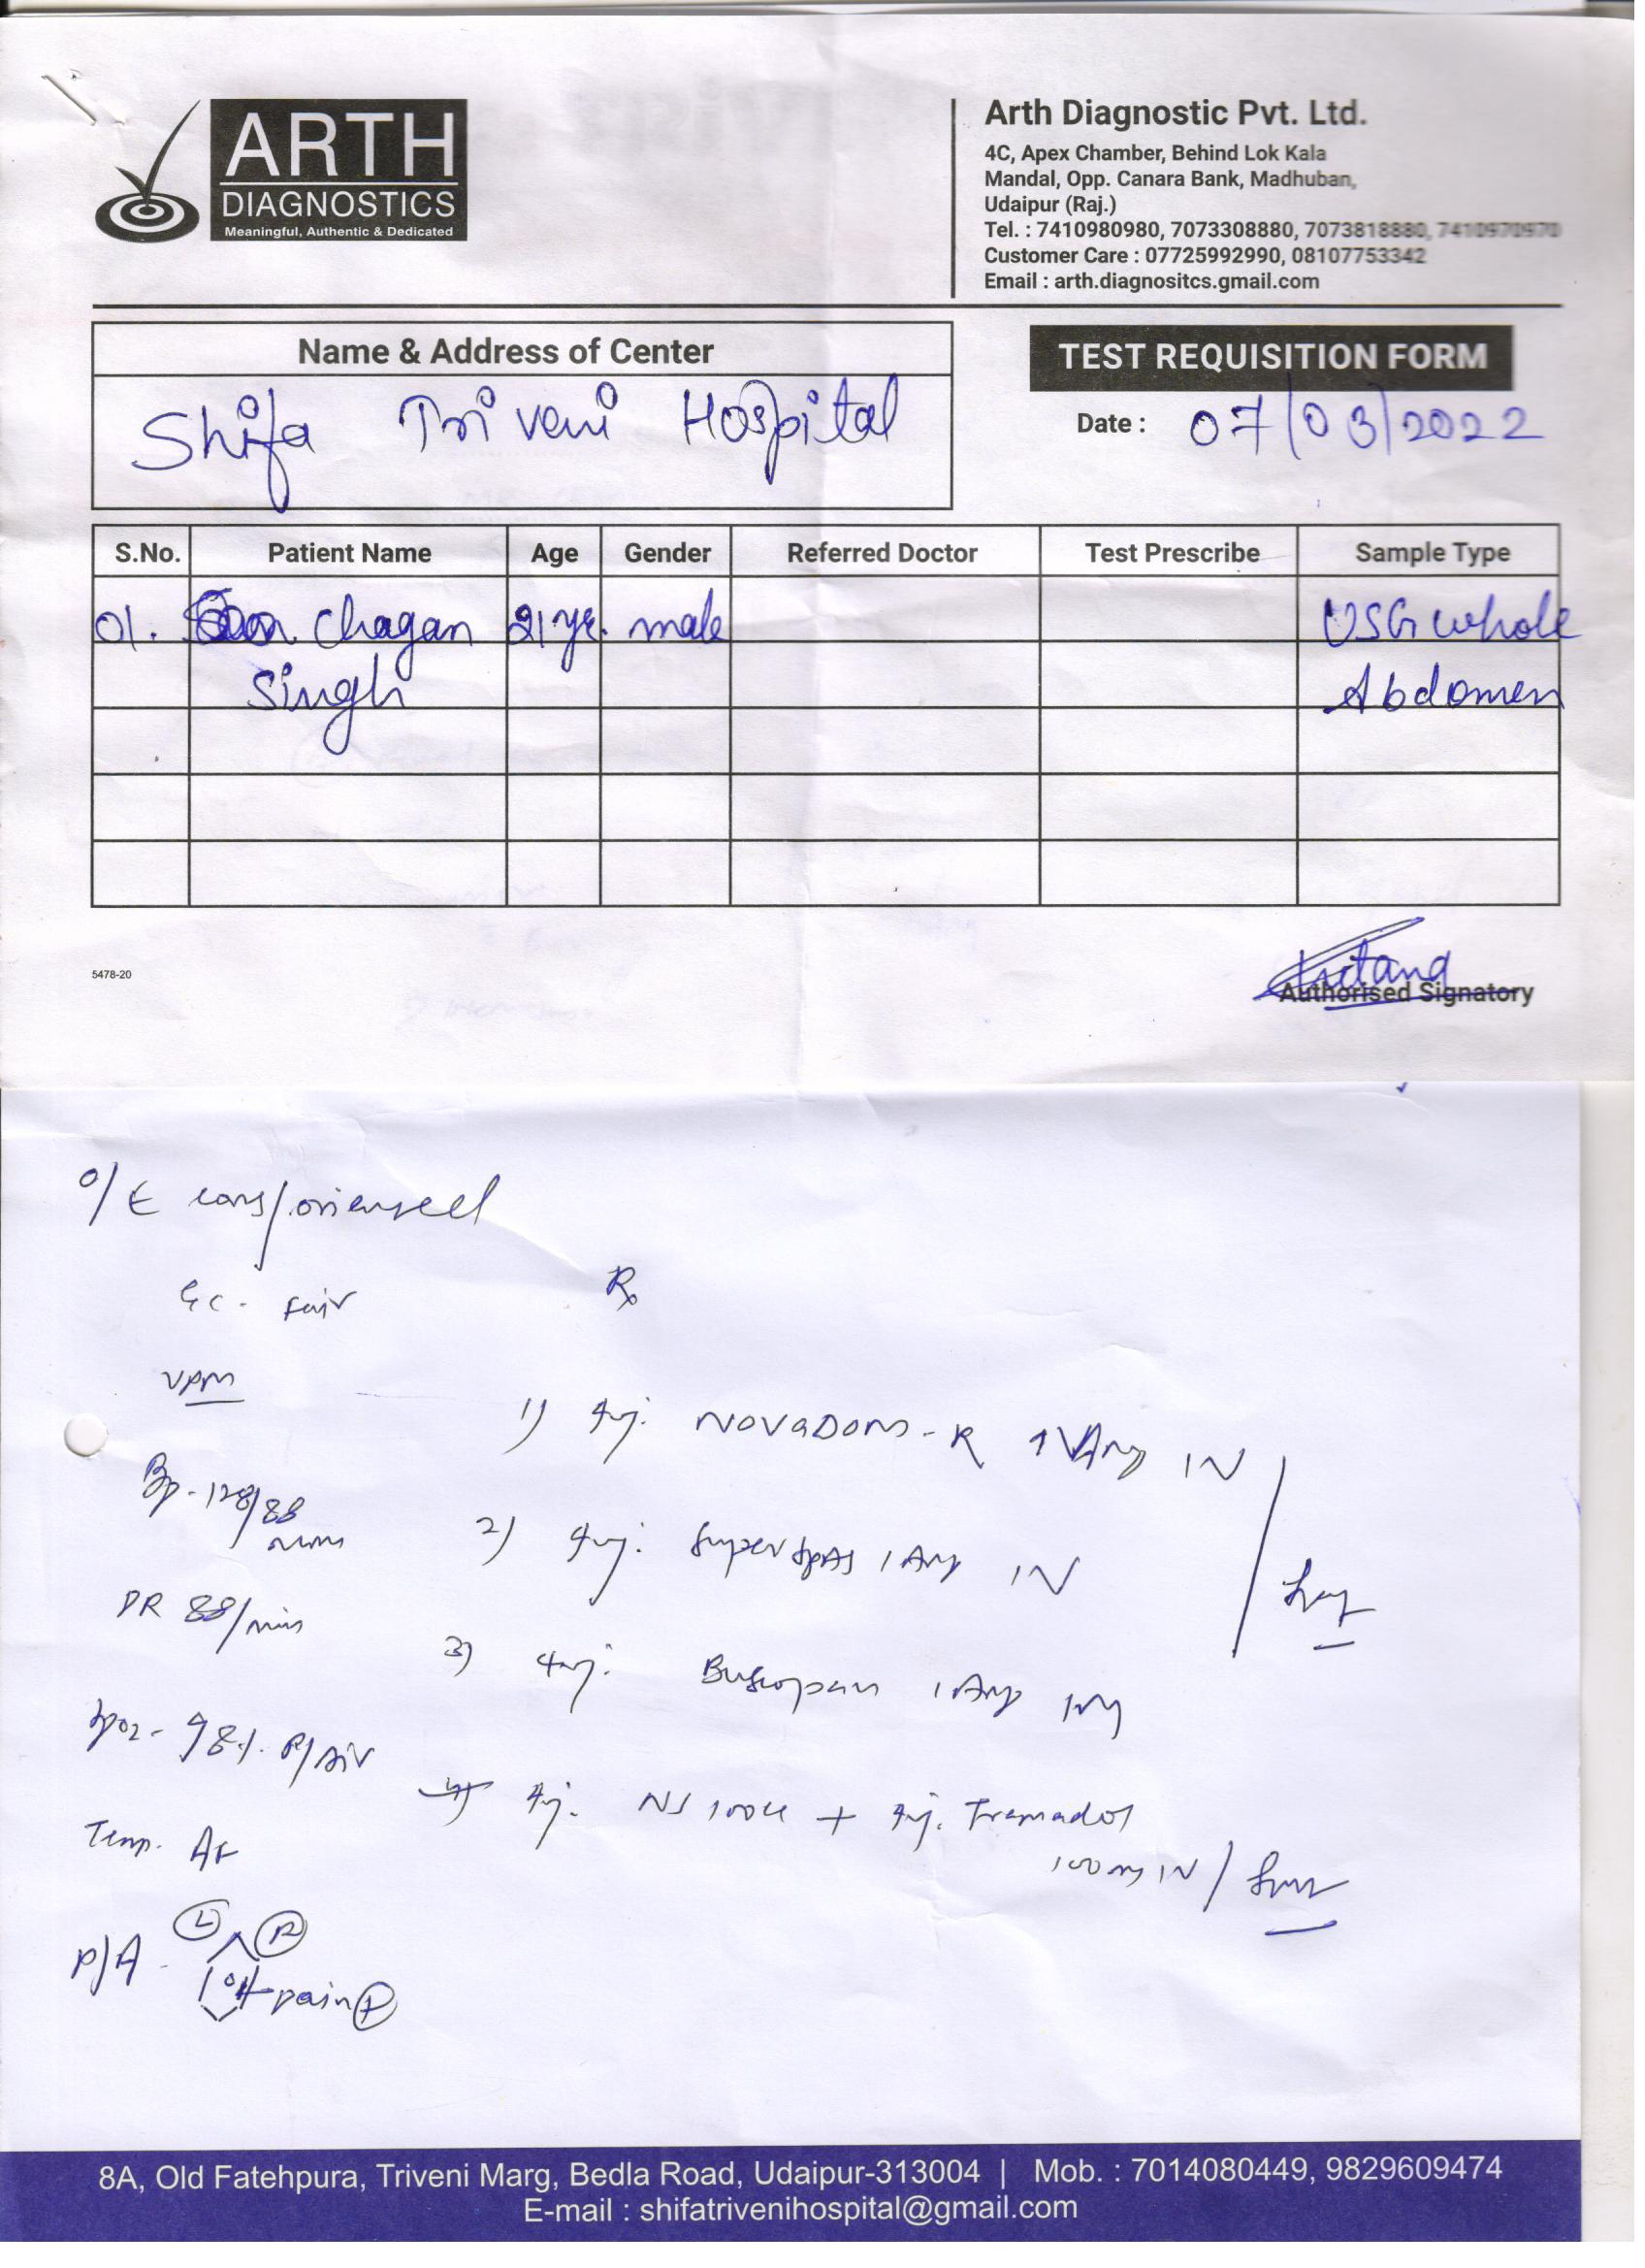 ARTH
DIAGNOSTICS
Meaningful, Authentic & Dedicated
Arth Diagnostic Pvt. Ltd.
4C, Apex Chamber, Behind Lok Kala
Mandal, Opp. Canara Bank, Madhuban,
Udaipur (Raj.)
Tel. : 7410980980, 7073308880, 7073818880, 7410970970
Customer Care : 07725992990, 08107753342
Email : arth.diagnositcs.gmail.com
Name & Address of Center
Shifa Triveni Hospital
TEST REQUISITION FORM
Date : 07/03/2022
S.No. Patient Name Age Gender Referred Doctor Test Prescribe Sample Type
01. Chagan 21 yr. male USG whole
Singh Abdomen
5478-20
Authorised Signatory
O/E cons/oriented
GC - fair
Rx
VPM
1) Inj. NOVADOM-R 1 IV
BP - 128/88
mm
2) Inj. Superspas 1 Amp IV
PR 88/min
3) Inj. Buscopan 1 Amp IM
SpO2 - 98% R/Air
4) Inj. NS 100 + Inj. Tramadol
100 mg IV /
Temp. Af
P/A - L R
pain +
8A, Old Fatehpura, Triveni Marg, Bedla Road, Udaipur-313004 | Mob. : 7014080449, 9829609474
E-mail : shifatrivenihospital@gmail.com